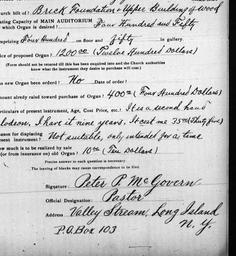 church bldg.) Brick Foundation & Upper Building of Wood
Seating Capacity of MAIN AUDITORIUM
which Organ is desired? Four Hundred and Fifty
comprising Four Hundred on floor and Fifty in gallery
of proposed Organ? 1200.00 (Twelve Hundred Dollars)
(Form should not be returned till this has been inquired into and the Church authorities
know what the instrument they desire to purchase will cost)
new Organ been ordered? No Date of order?
amount already raised toward purchase of Organ? 400.00 (Four Hundred Dollars)
Particulars of present instrument, Age, Cost Price, etc.) It is a second hand
Melodeon, I have it nine years. It cost me 35.00 (Thirty five)
reason for displacing
present Instrument? Not suitable, only intended for a time
much is to be realized by sale
(or from insurance on) old Organ? 10.00 (Ten Dollars)
Precise answer to each question is necessary
The leaving of blanks may cause correspondence in list.
Signature: Peter P. McGovern
Official Designation: Pastor
Address: Valley Stream, Long Island
P.O. Box 103 N.Y.